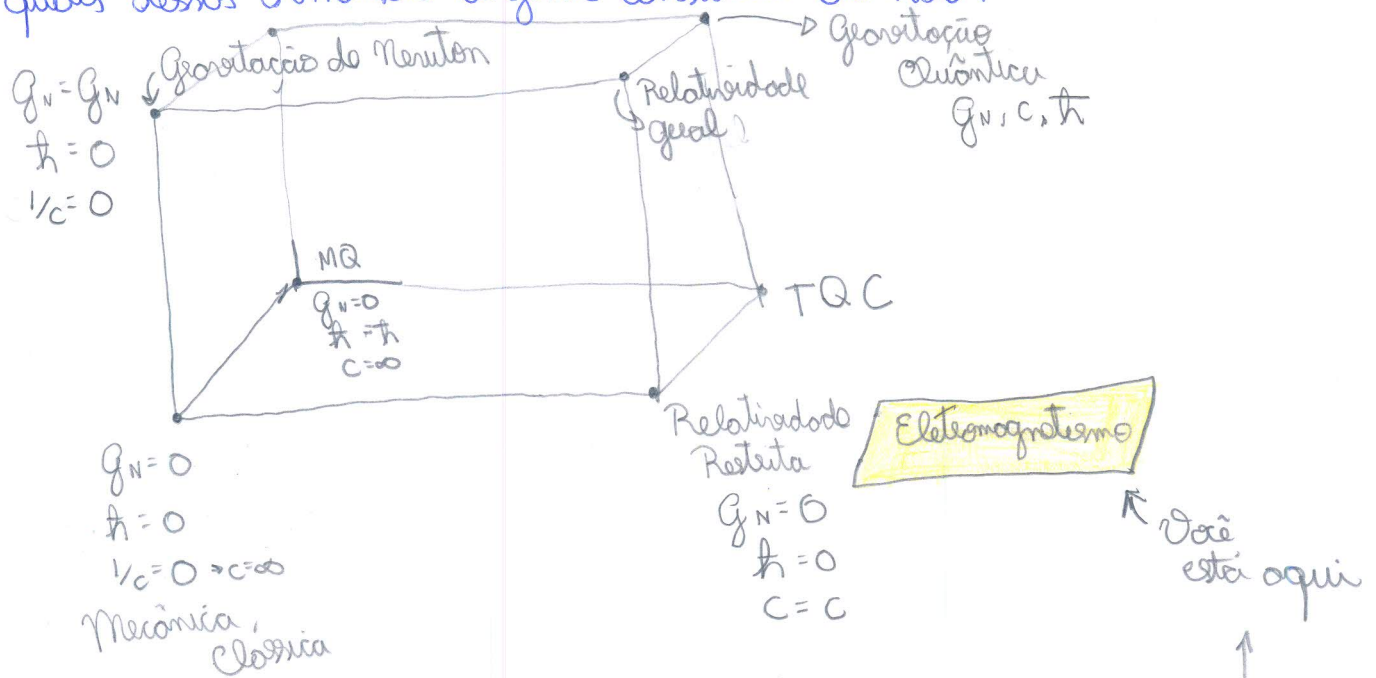 quais dessas
Gravitação de Newton
G_N = G_N
ħ = 0
1/c = 0
Relatividade
geral
Gravitação
Quântica
G_N, c, ħ
MQ
G_N = 0
ħ = ħ
c = ∞
TQC
G_N = 0
ħ = 0
1/c = 0 → c = ∞
Mecânica
Clássica
Relatividade
Restrita
G_N = 0
ħ = 0
c = c
Eletromagnetismo
Você
está aqui